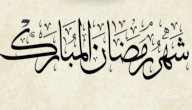 شَهْرُ رَمَضَان المُبَارَك